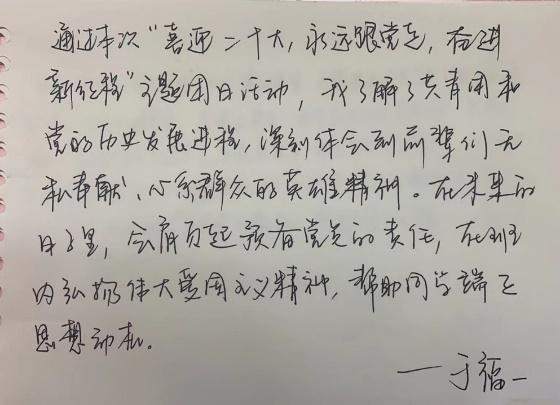 通过本次“喜迎二十大,永远跟党走,奋进
新征程”主题团日活动,我了解了共青团和
党的历史发展进程,深刻体会到前辈们无
私奉献、心系群众的英雄精神。在未来的
日子里,会肩负起预备党员的责任,在班
内弘扬伟大爱国主义精神,帮助同学端正
思想动机。
——于福一